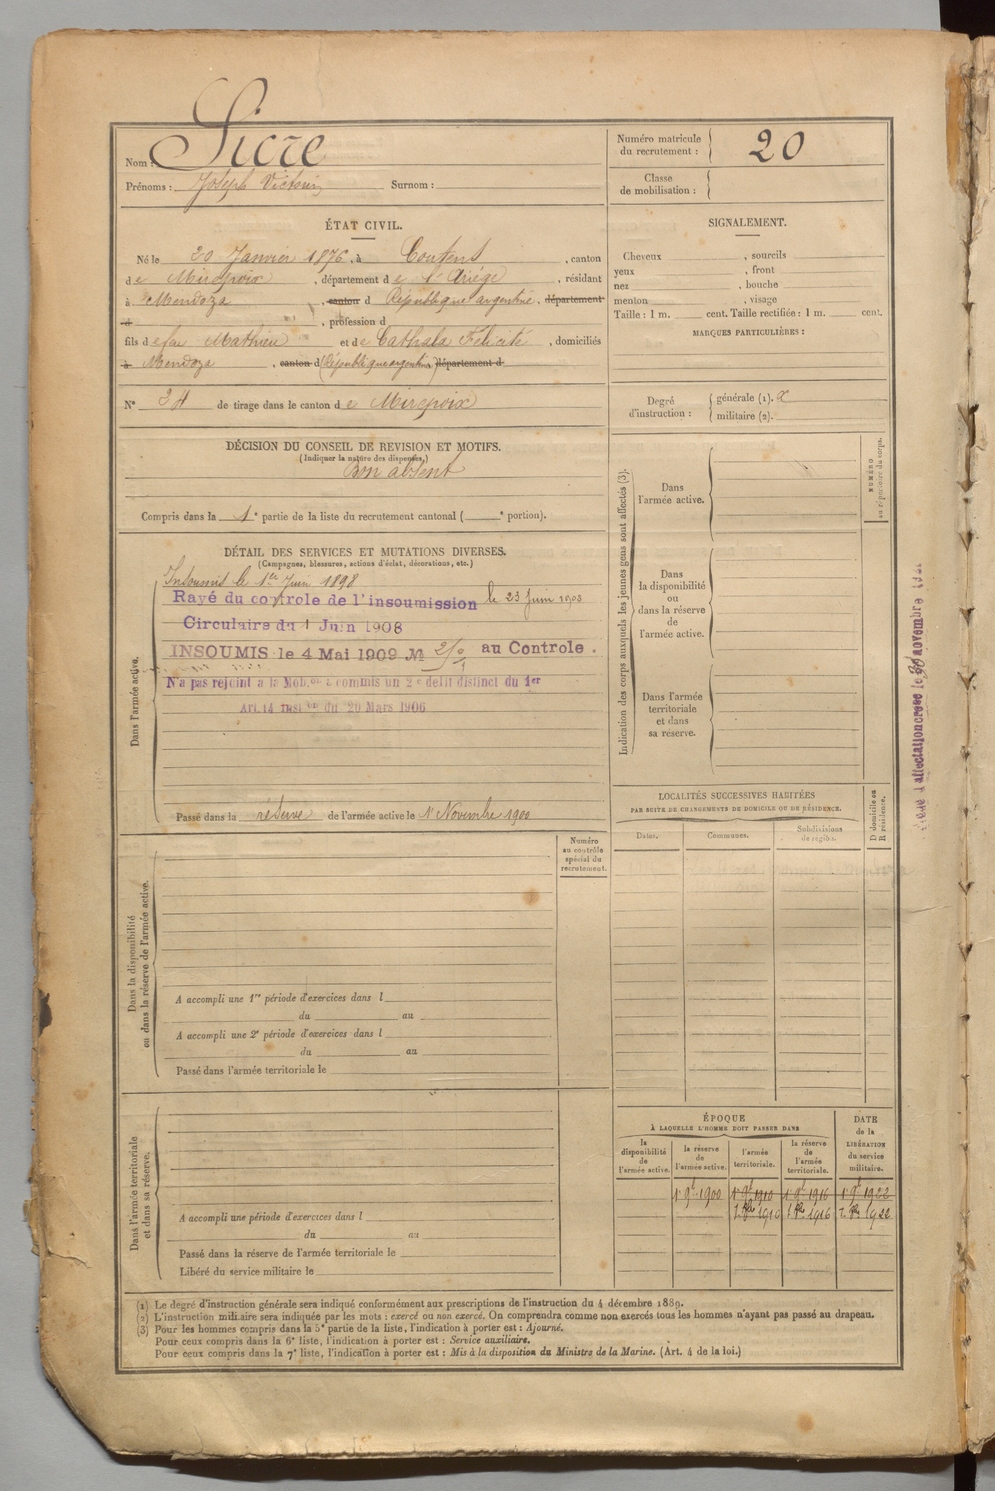 Nom : Sicre
Prénoms : Joseph Victorin Surnom :
Numéro matricule du recrutement : 20
Classe de mobilisation :
ÉTAT CIVIL.
Né le 20 Janvier 1876, à Coutens, canton
de Mirepoix, département de l'Ariége, résidant
à Mendoza, canton d République argentine, département
d , profession d
fils de feu Mathieu et de Cathala Félicité, domiciliés
à Mendoza, canton d (République argentine) département d
N° 24 de tirage dans le canton de Mirepoix
SIGNALEMENT.
Cheveux , sourcils
yeux , front
nez , bouche
menton , visage
Taille : 1 m. cent. Taille rectifiée : 1 m. cent.
MARQUES PARTICULIÈRES :
Degré d'instruction : générale (1).
militaire (2).
DÉCISION DU CONSEIL DE REVISION ET MOTIFS.
(Indiquer la nature des dispenses,)
Bon absent
Compris dans la 1e partie de la liste du recrutement cantonal ( e portion).
DÉTAIL DES SERVICES ET MUTATIONS DIVERSES.
(Campagnes, blessures, actions d'éclat, décorations, etc.)
Dans l'armée active.
Insoumis le 1er Juin 1898
Rayé du controle de l'insoumission le 23 Juin 1908
Circulaire du 1 Juin 1908
INSOUMIS le 4 Mai 1909 N° au Controle.
N'a pas rejoint à la Mob.on a commis un 2e délit distinct du 1er
Art. 14 Inst.on du 20 Mars 1906
Passé dans la réserve de l'armée active le 1r Novembre 1900
Indication des corps auxquels les jeunes gens sont affectés (3).
Dans l'armée active.
Dans la disponibilité ou dans la réserve de l'armée active.
Dans l'armée territoriale et dans sa réserve.
NUMÉRO au répertoire du corps.
LOCALITÉS SUCCESSIVES HABITÉES
PAR SUITE DE CHANGEMENTS DE DOMICILE OU DE RÉSIDENCE.
Dates. Communes. Subdivisions de région.
D domicile ou R résidence.
d'affectation le novembre
Dans la disponibilité ou dans la réserve de l'armée active.
Numéro au contrôle spécial du recrutement.
A accompli une 1re période d'exercices dans l
du au
A accompli une 2e période d'exercices dans l
du au
Passé dans l'armée territoriale le
Dans l'armée territoriale et dans sa réserve.
A accompli une période d'exercices dans l
du au
Passé dans la réserve de l'armée territoriale le
Libéré du service militaire le
ÉPOQUE
À LAQUELLE L'HOMME DOIT PASSER DANS
la disponibilité de l'armée active.
la réserve de l'armée active.
l'armée territoriale.
la réserve de l'armée territoriale.
DATE de la LIBÉRATION du service militaire.
1r 9bre 1900 1r 9bre 1910 1r 9bre 1916 1r 9bre 1922
1910 1916 1922
(1) Le degré d'instruction générale sera indiqué conformément aux prescriptions de l'instruction du 4 décembre 1889.
(2) L'instruction militaire sera indiquée par les mots : exercé ou non exercé. On comprendra comme non exercés tous les hommes n'ayant pas passé au drapeau.
(3) Pour les hommes compris dans la 5e partie de la liste, l'indication à porter est : Ajourné.
Pour ceux compris dans la 6e liste, l'indication à porter est : Service auxiliaire.
Pour ceux compris dans la 7e liste, l'indication à porter est : Mis à la disposition du Ministre de la Marine. (Art. 4 de la loi.)